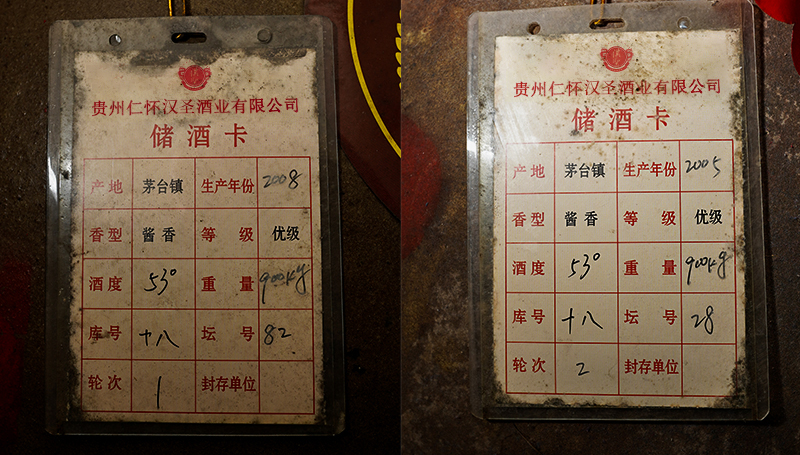 贵州仁怀汉圣酒业有限公司
储酒卡
产地 茅台镇 生产年份 2008
香型 酱香 等级 优级
酒度 53° 重量 900kg
库号 十八 坛号 82
轮次 1 封存单位
贵州仁怀汉圣酒业有限公司
储酒卡
产地 茅台镇 生产年份 2005
香型 酱香 等级 优级
酒度 53° 重量 900kg
库号 十八 坛号 28
轮次 2 封存单位